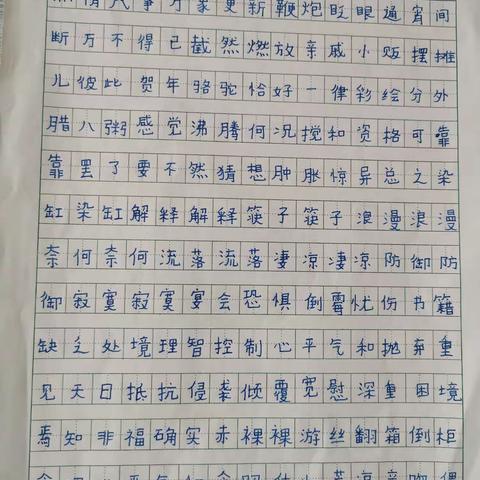 情人事万家更新鞭炮眨眼通宵间
断万不得已截然燃放亲戚小贩摆摊
儿彼此贺年骆驼恰好一律彩绘分外
腊八粥感觉沸腾何况搅和资格可靠
靠罢了要不然猜想肿胀惊异总之染
缸染缸解释解释筷子筷子浪漫浪漫
奈何奈何流落流落凄凉凄凉防御防
御寂寞寂寞宴会恐惧倒霉忧伤书籍
缺乏处境理智控制心平气和抛弃重
见天日抵抗侵袭倾覆宽慰深重困境
焉知非福确实赤裸裸游丝翻箱倒柜